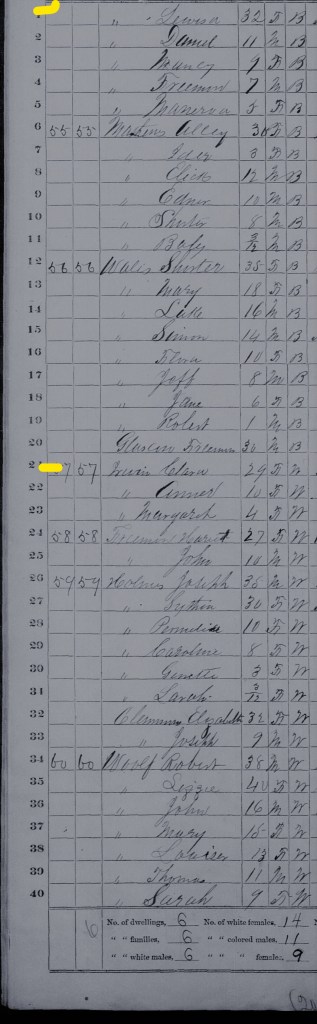 " Lewisa 32 F B
2 " Daniel 11 M B
3 " Nancy 9 F B
4 " Freeman 7 M B
5 " Manerva 5 F B
6 55 55 Alcey 30 F B
7 " 3 F B
8 " Click 12 M B
9 " Edner 10 M B
10 " Shurter 8 M B
11 " 3/12 M B
12 56 56 Wales Shurter 35 F B
13 " Mary 18 F B
14 " Luke 16 M B
15 " Simon 14 M B
16 " 10 F B
17 " Joff 8 M B
18 " Jane 6 F B
19 " Robert 1 M B
20 Freeman 30 M B
21 57 57 29 F W
22 " 10 F W
23 " Margaret 4 F W
24 58 58 Freeman Hariet 27 F W
25 " John 10 M W
26 59 59 Holmes Joseph 35 M W
27 " Sythia 30 F W
28 " 10 F W
29 " Caroline 8 F W
30 " Genette 3 F W
31 " Sarah 3/12 F W
32 Elizabeth 32 F W
33 " Joseph 9 M W
34 60 60 Woolf Robert 38 M W
35 " Lizzie 40 F W
36 " John 16 M W
37 " Mary 15 F W
38 " Louiser 13 F W
39 " Thomas 11 M W
40 " Sarah 9 F W
6 No. of dwellings, 6 No. of white females, 14
" " families, 6 " " colored males, 11
" " white males, 6 " " females, 9